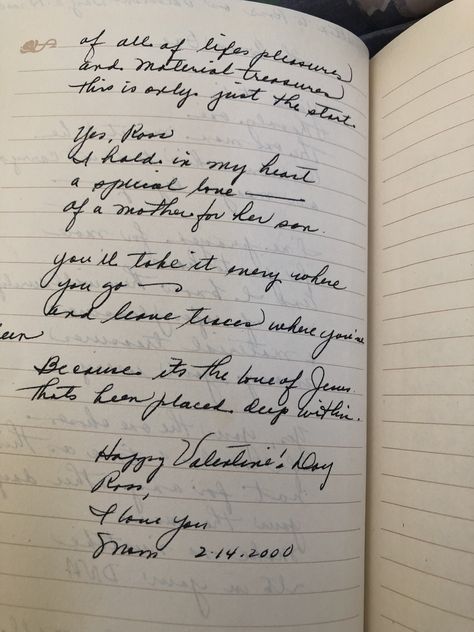 of all of lifes pleasures
and material treasures
this is only just the start.
Yes, Ross
I hold in my heart
a special love —
of a mother for her son.
you'll take it every where
you go —
and leave traces where you've
been
Because its the love of Jesus
thats been placed deep within.
Happy Valentine's Day
Ross,
I love you
Mom 2.14.2000